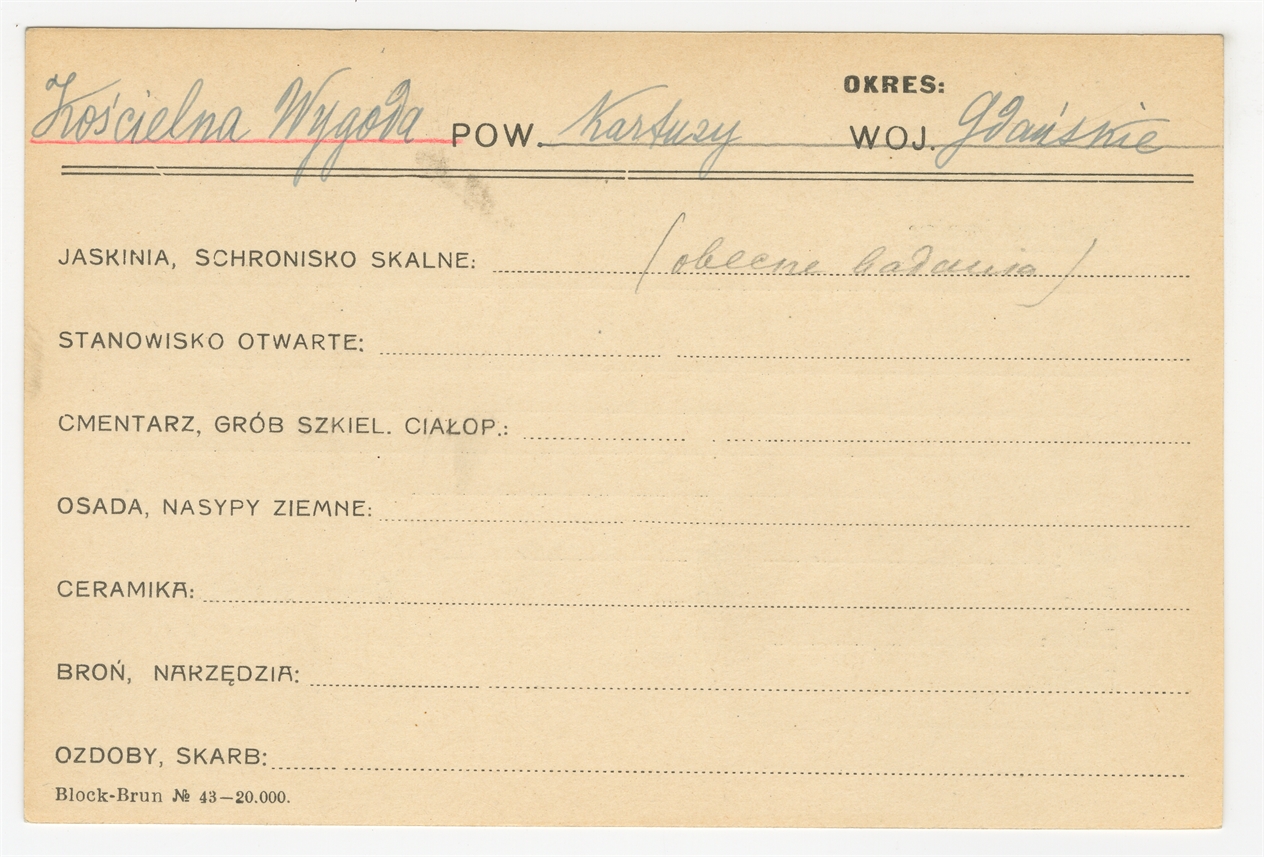 OKRES:
Kościelna Wygoda POW. Kartuzy WOJ. Gdańskie
JASKINIA, SCHRONISKO SKALNE: (obecne badania)
STANOWISKO OTWARTE:
CMENTARZ, GRÓB SZKIEL. CIAŁOP.:
OSADA, NASYPY ZIEMNE:
CERAMIKA:
BROŃ, NARZĘDZIA:
OZDOBY, SKARB:
Block-Brun № 43—20.000.